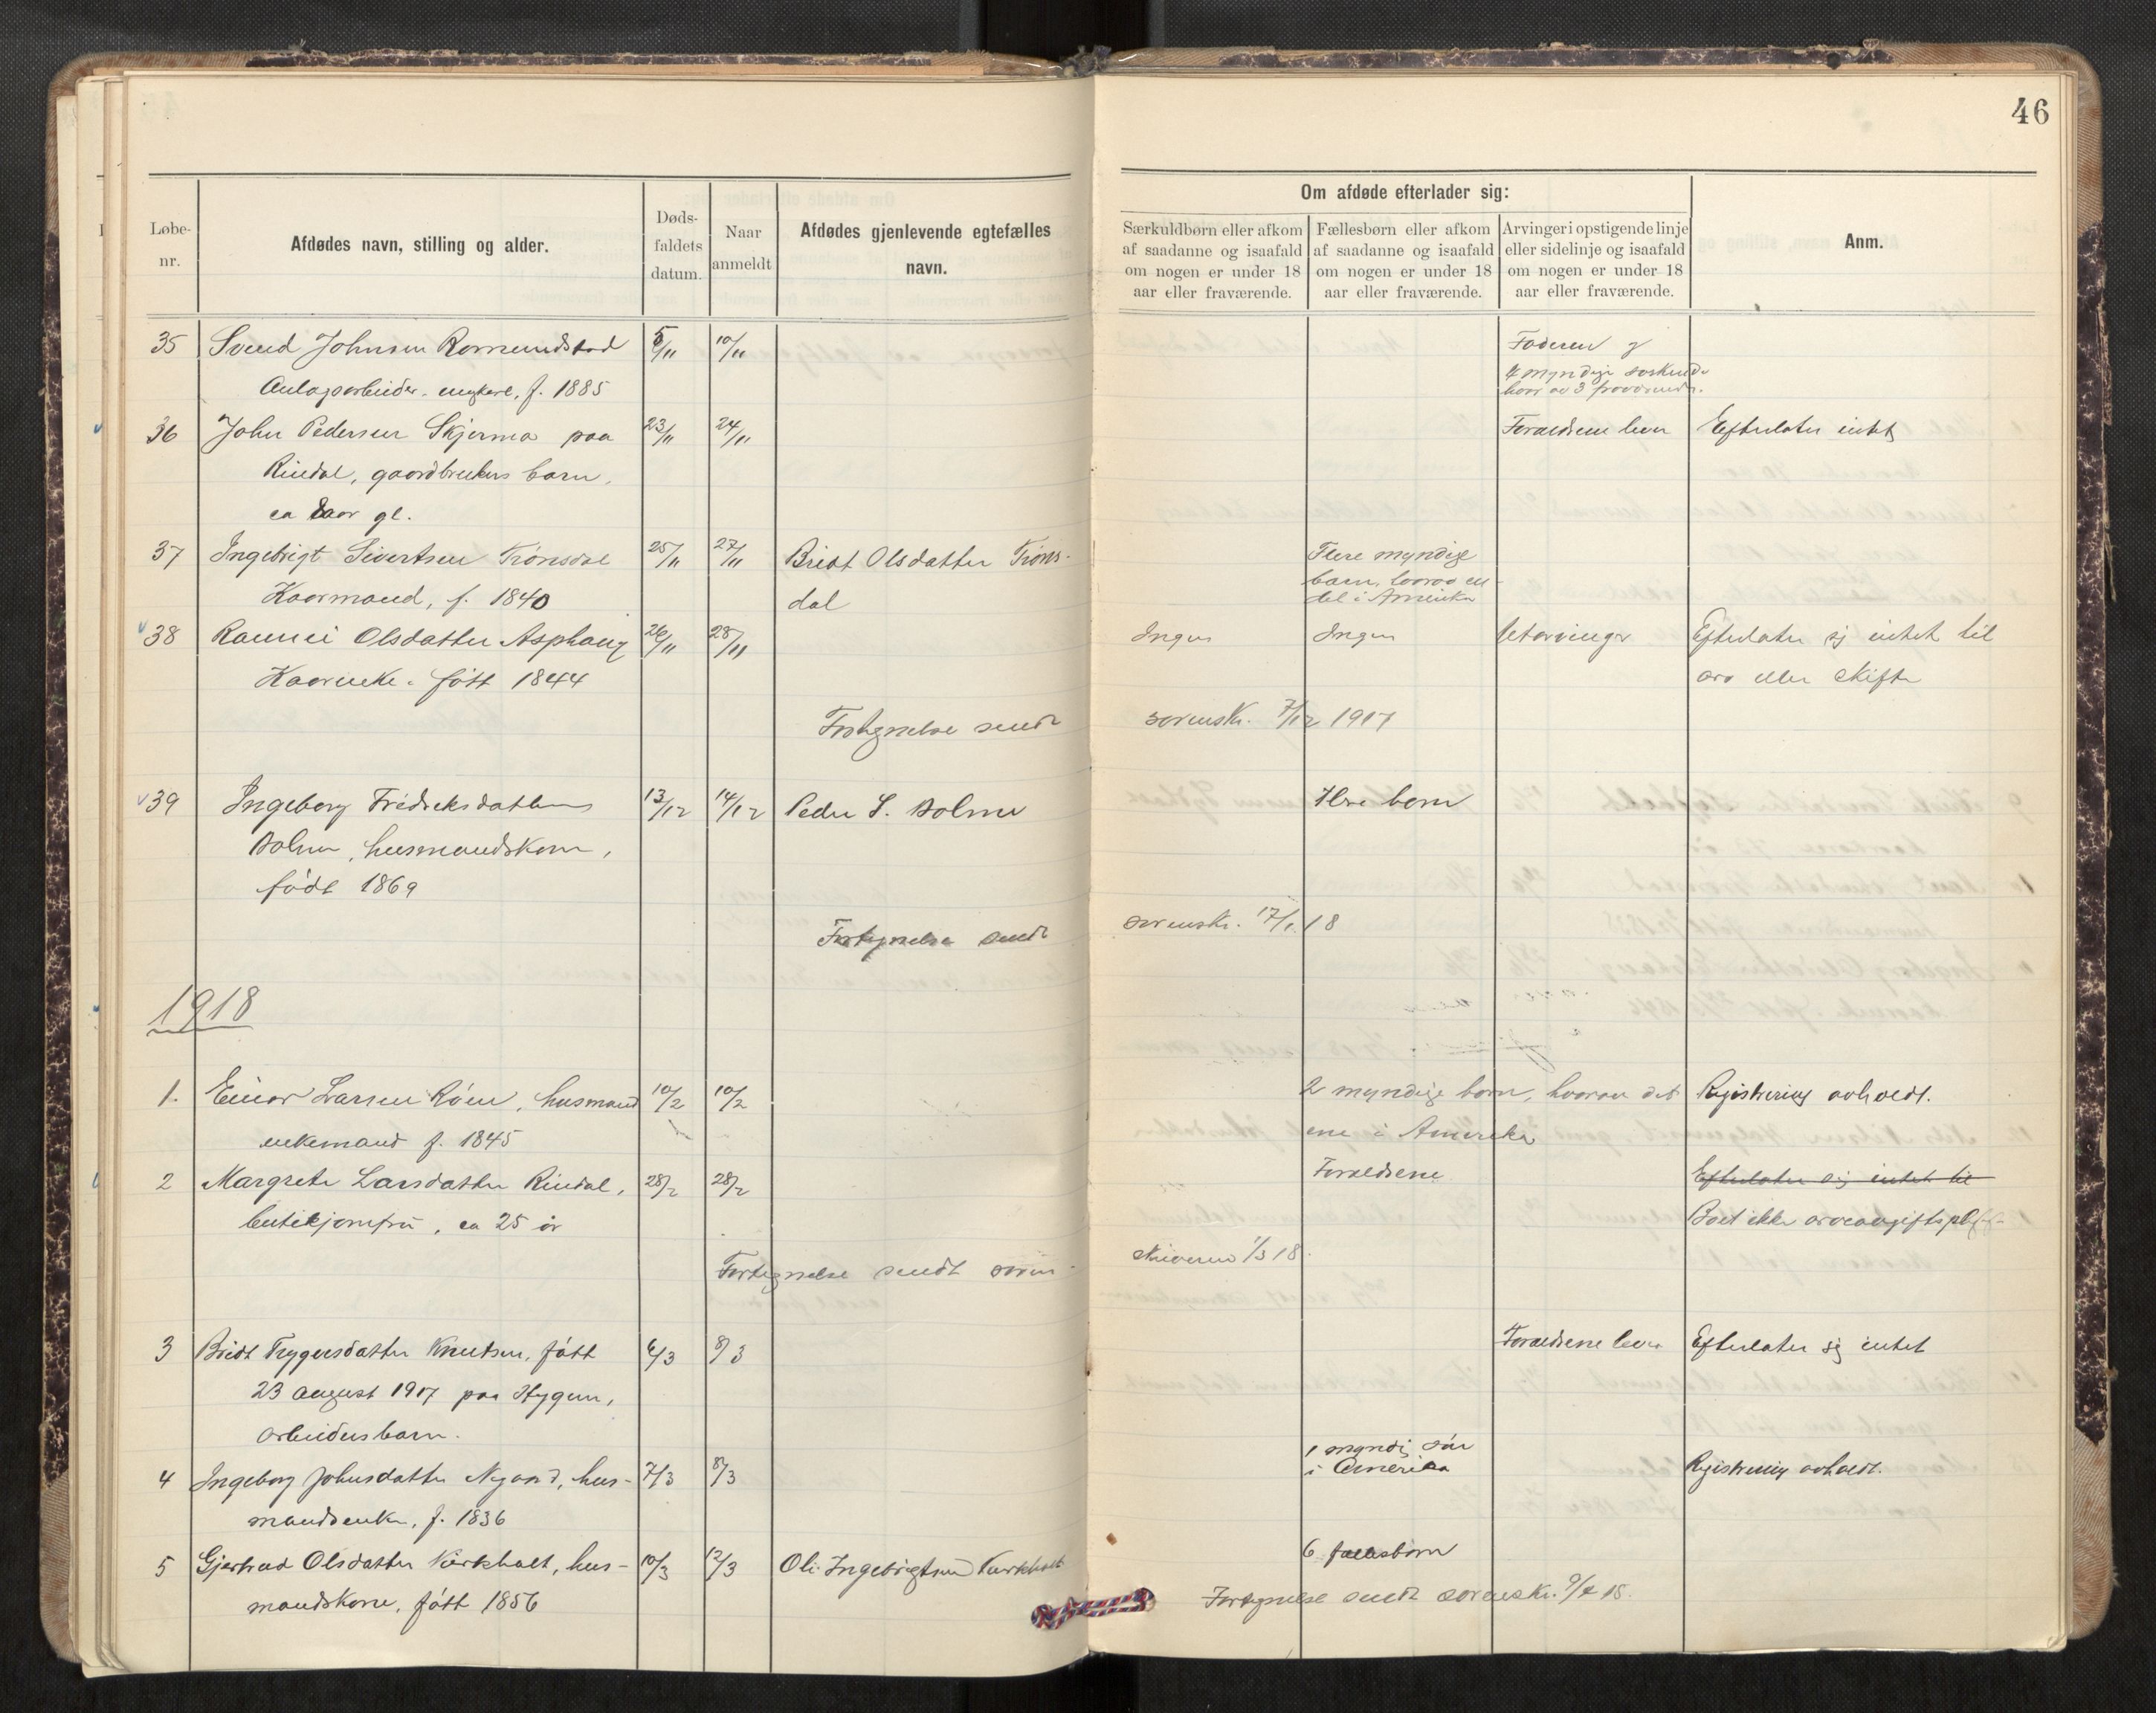 46
Løbe-nr.
Afdødes navn, stilling og alder.
Døds-faldets datum.
Naar anmeldt
Afdødes gjenlevende egtefælles navn.
Om afdøde efterlader sig:
Særkuldbørn eller afkom af saadanne og isaafald om nogen er under 18 aar eller fraværende.
Fællesbørn eller afkom af saadanne og isaafald om nogen er under 18 aar eller fraværende.
Arvinger i opstigende linje eller sidelinje og isaafald om nogen er under 18 aar eller fraværende.
Anm.
35 Svend Johnsen Romundstad 5/11 10/11 Faderen og
Anlagsarbeider, ungkarl, f. 1885 4 myndige søskende
hvor av 3 fraværende.
36 John Pedersen Skjermo paa 23/11 24/11 Forældrene lever Efterlater intet
Rindal, gaardbrukers barn,
ca aar gl.
37 Ingebrigt Sivertsen Trønsdal 25/11 27/11 Bridt Olsdatter Trøns- Flere myndige
Kaarmand, f. 1840 dal barn, hvorav en
del i Amerika
38 Raunei Olsdatter Asphaug 26/11 28/11 Ingen Ingen Utarvinger Efterlater sig intet til
Kaarenke. født 1844 arv eller skifte
Fortegnelse sendt sorenskr. 7/12 1917
39 Ingeborg Fredriksdatter 13/12 14/12 Peder S. Bolme Flere born
Bolme, husmandskone,
født 1869
Fortegnelse sendt sorenskr. 17/1 18
1918
1. Einar Larsen Røen, husmand 10/2 10/2 2 myndige born, hvorav det Registrering avholdt.
enkemand f. 1845 ene i Amerika
2 Margrete Larsdatter Rindal, 28/2 28/2 Forældrene Efterlater sig intet til
butikjomfru, ca 25 år Boet ikke arveavgiftspl.
Fortegnelse sendt soren- skriveren 1/3 18.
3 Bridt Trygersdatter Knutsen, født 6/3 8/3 Forældrene lever Efterlater sig intet
23 august 1917 paa Hygen,
arbeidersbarn.
4 Ingeborg Johnsdatter Nyand, hus- 7/3 8/3 1 myndig søn i Amerika Registrering avholdt.
mandsenke, f. 1836
5 Gjertrud Olsdatter Kirkholt, hus- 10/3 12/3 Ole Ingebrigtsen Kirkholt 6 fællesbørn
mandskone, født 1856 Fortegnelse sendt sorenskr. 9/4 18.